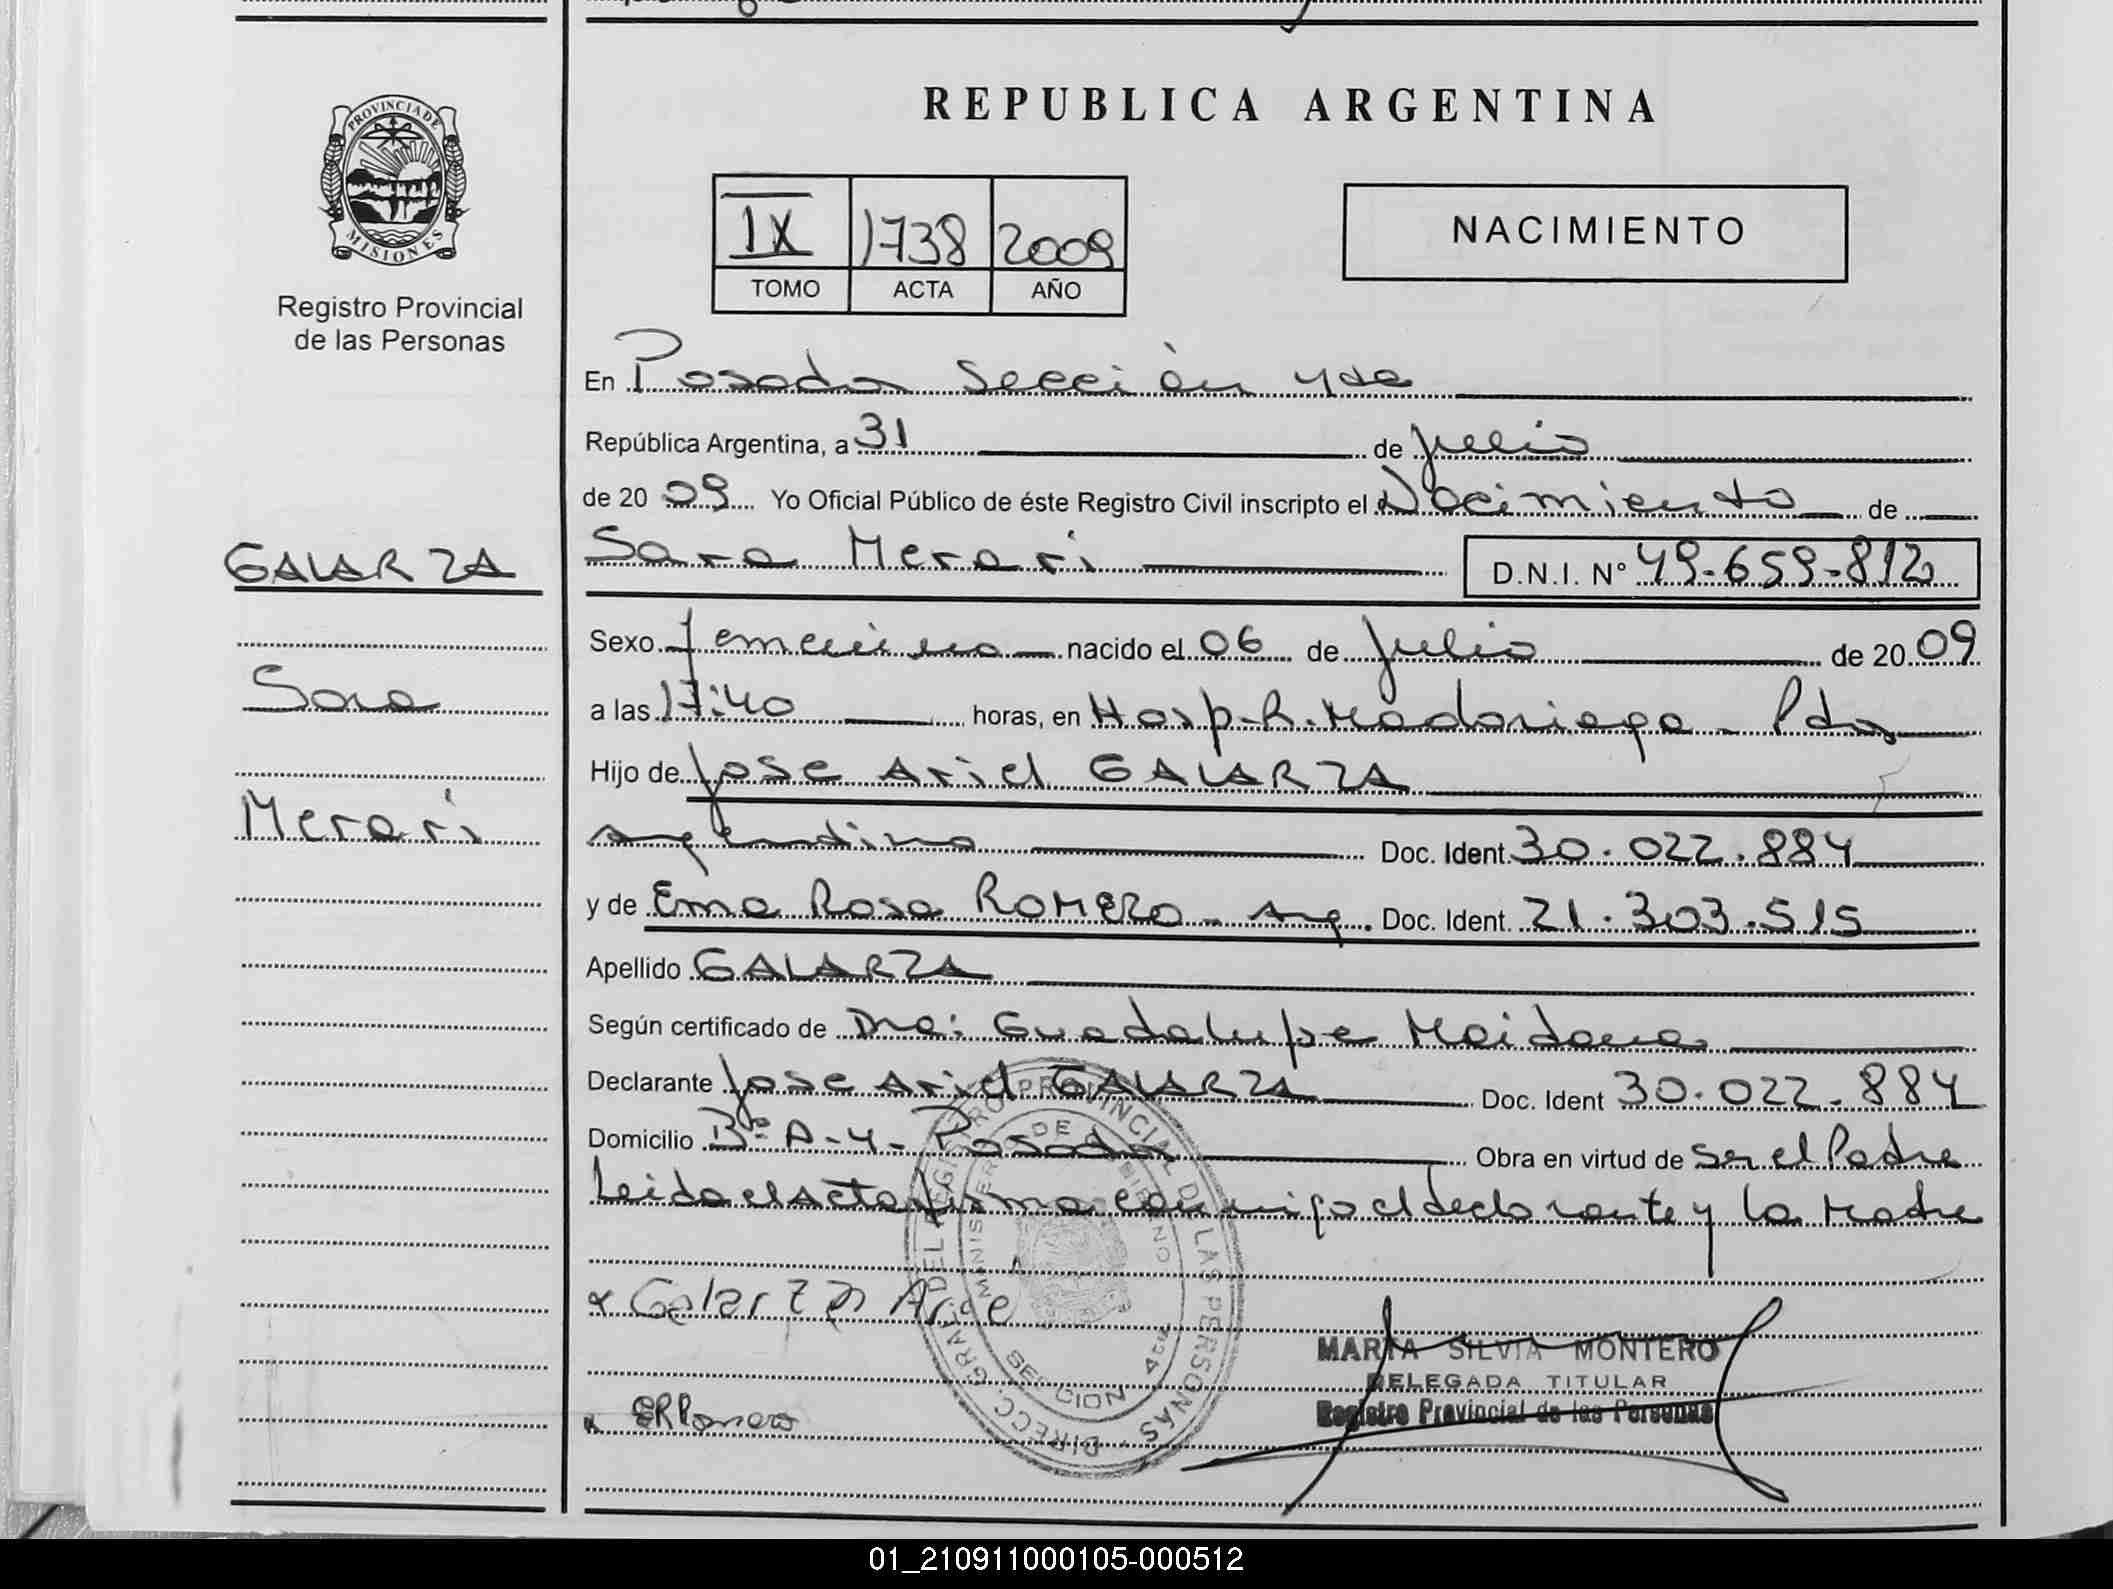 REPUBLICA ARGENTINA
PROVINCIA DE
MISIONES
Registro Provincial
de las Personas
IX 1738 2009
TOMO ACTA AÑO
NACIMIENTO
En Posadas Sección 4ta
República Argentina, a 31 de julio
de 20 09 Yo Oficial Público de éste Registro Civil inscripto el Nacimiento de
Sara Merari D.N.I. Nº 49.659.812
GALARZA
Sara
Merari
Sexo femenino nacido el 06 de Julio de 20 09
a las 17:40 horas, en Hosp. R. Madariaga - Pdas
Hijo de Jose Ariel GALARZA
Argentino Doc. Ident. 30.022.884
y de Ema Rosa ROMERO - Arg. Doc. Ident. 21.303.515
Apellido GALARZA
Según certificado de Dra: Guadalupe Maidana
Declarante Jose Ariel GALARZA Doc. Ident 30.022.884
Domicilio Bº A-4- Posadas Obra en virtud de Ser el Padre
Leida el Acta firma conmigo el declarante y la Madre
x Galarza Arie
x ER Romero
DIRECC. GRAL. DEL REGISTRO PROVINCIAL DE LAS PERSONAS
SECCION 4ta
MARTA SILVIA MONTERO
DELEGADA TITULAR
Registro Provincial de las Personas
01_210911000105-000512